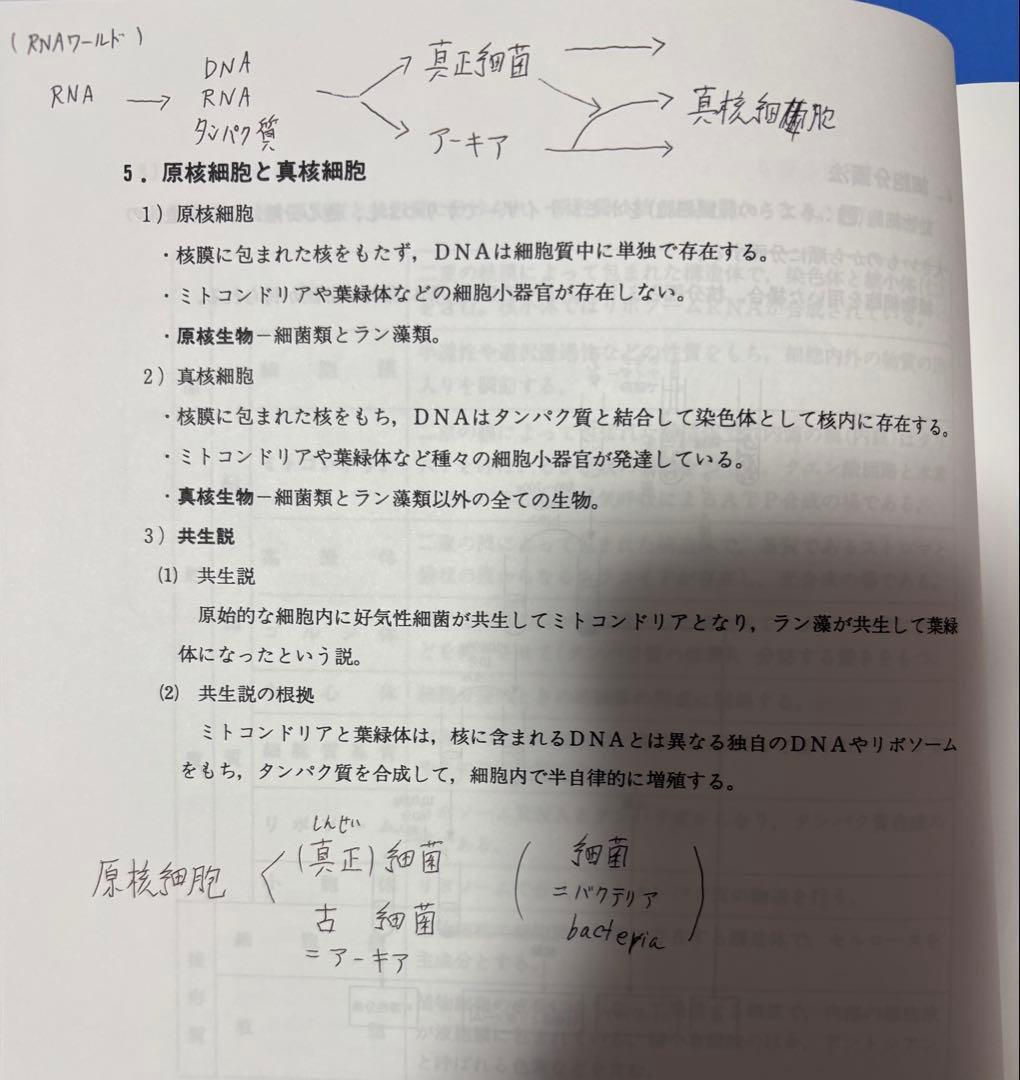 (RNAワールド)
DNA
RNA → RNA
タンパク質
真正細菌
アーキア
真核細胞
5．原核細胞と真核細胞
1）原核細胞
・核膜に包まれた核をもたず，DNAは細胞質中に単独で存在する。
・ミトコンドリアや葉緑体などの細胞小器官が存在しない。
・原核生物－細菌類とラン藻類。
2）真核細胞
・核膜に包まれた核をもち，DNAはタンパク質と結合して染色体として核内に存在する。
・ミトコンドリアや葉緑体など種々の細胞小器官が発達している。
・真核生物－細菌類とラン藻類以外の全ての生物。
3）共生説
(1) 共生説
原始的な細胞内に好気性細菌が共生してミトコンドリアとなり，ラン藻が共生して葉緑
体になったという説。
(2) 共生説の根拠
ミトコンドリアと葉緑体は，核に含まれるDNAとは異なる独自のDNAやリボソーム
をもち，タンパク質を合成して，細胞内で半自律的に増殖する。
しんせい
原核細胞 < (真正)細菌
古 細菌
=アーキア
(細菌
=バクテリア
bacteria)